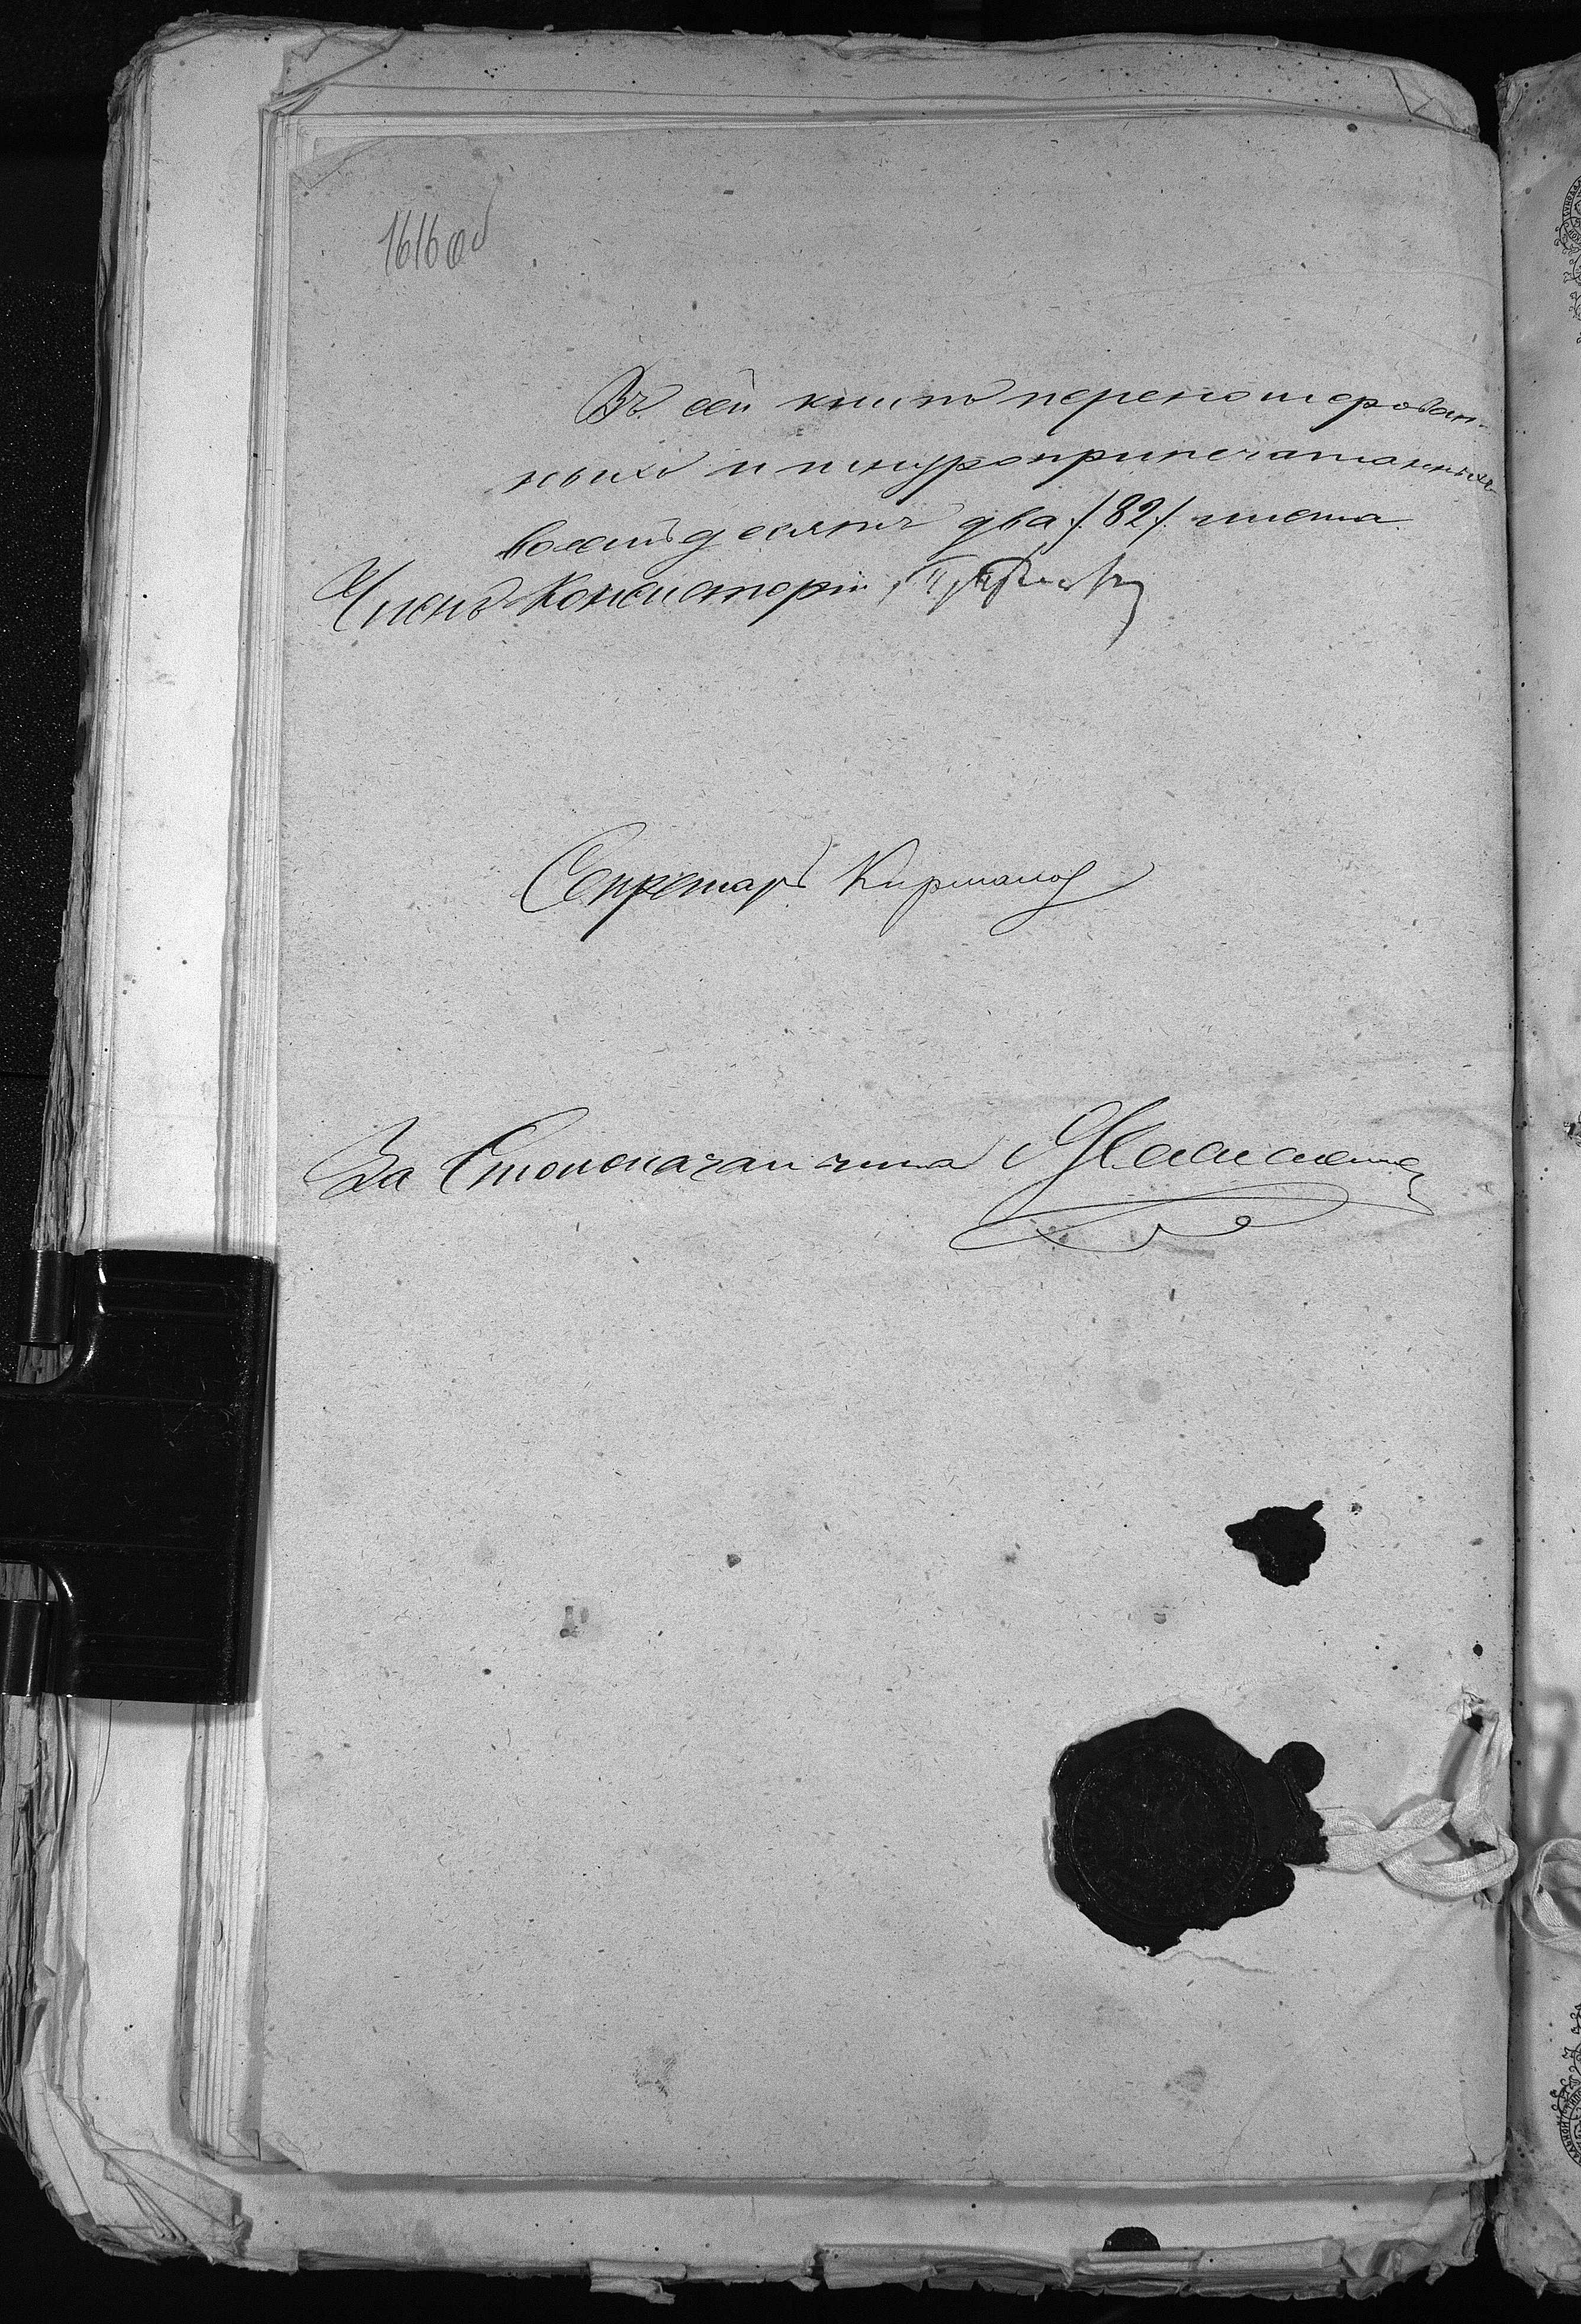 1616 об
Въ сей книгѣ переномерован-
ныхъ и шнуроприпечатанныхъ
восемьдесятъ два /.82/. листа.
Членъ Консисторіи,
Секретарь
За Столоначальника